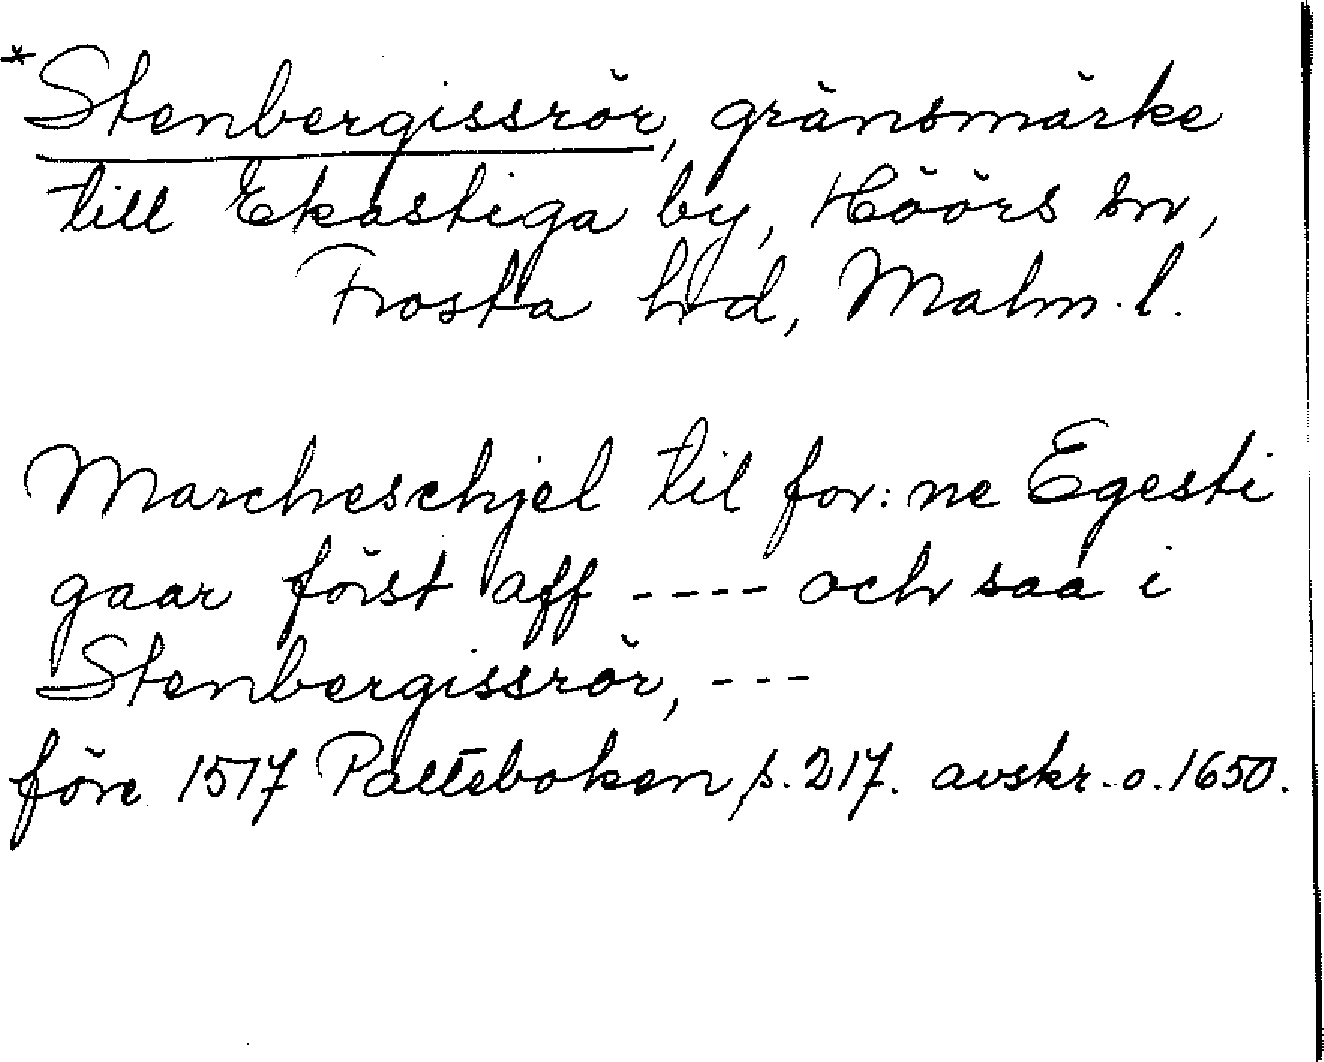 *Stenbergissrör, gränsmärke
till Ekastiga by, Höörs sn,
Frosta hd, Malm. l.
Marcheschjel til for: ne Egesti
gaar först aff ---- och saa i
Stenbergissrör, ---
före 1517 Palteboken, s. 217. avskr. o. 1650.